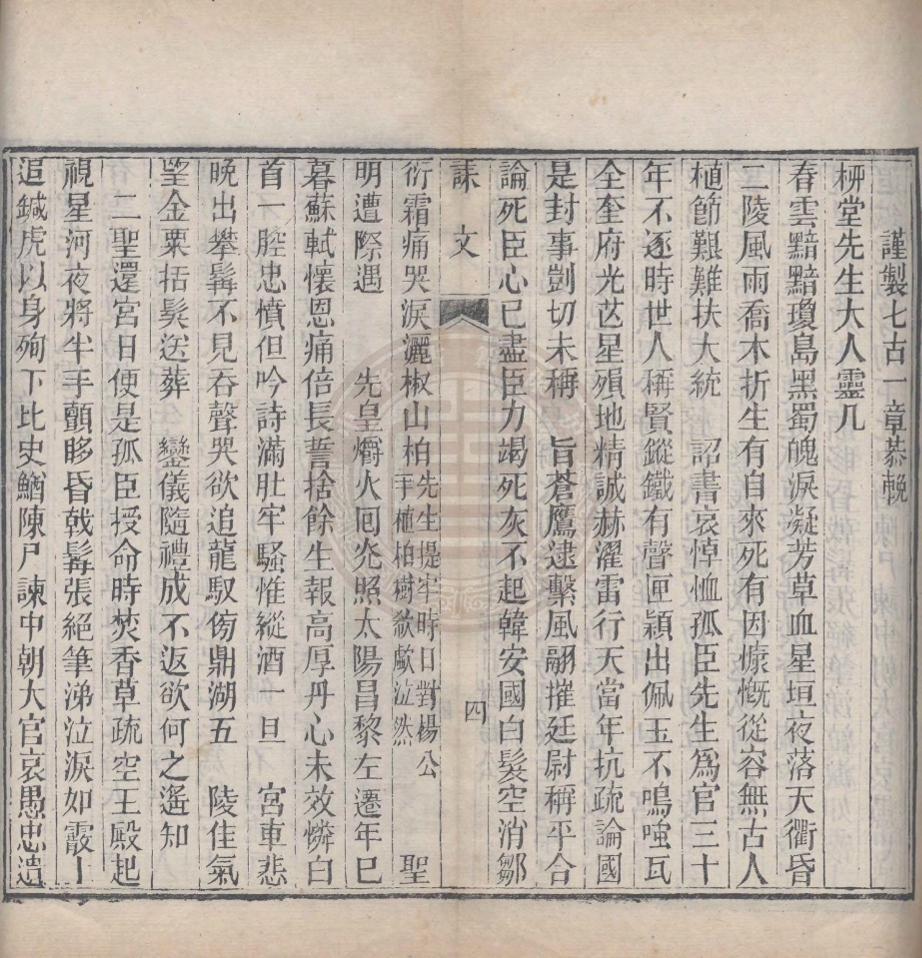 謹製七古一章恭輓
柳堂先生大人靈几
春雲黯黯瓊島黑蜀魄淚凝芳草血星垣夜落天衢昏
二陵風雨喬木折生有自來死有因慷慨從容無古人
植節艱難扶大統 詔書哀悼恤孤臣先生爲官三十
年不逐時世人稱賢鏦鐵有聲匣穎出佩玉不鳴嗤瓦
全奎府光芒星殞地精誠赫濯雷行天當年抗疏論國
是封事剴切未稱 旨蒼鷹逮繫風翮摧廷尉稱平合
論死臣心已盡臣力竭死灰不起韓安國白髮空消鄒
誄文 四
衍霜痛哭淚灑椒山柏先生提牢時日對楊公手植柏樹欷歔泣然 聖
明遭際遇 先皇爝火囘光照太陽昌黎左遷年已
暮蘇軾懷恩痛倍長誓捨餘生報高厚丹心未效憐白
首一腔忠憤但吟詩滿肚牢騷惟縱酒一旦 宮車悲
晚出攀髯不見吞聲哭欲追龍馭傍鼎湖五 陵佳氣
望金粟括髮送葬 鑾儀隨禮成不返欲何之遙知
二聖還宮日便是孤臣授命時焚香草疏空王殿起
視星河夜將半手顫眵昏戟髯張絕筆涕泣淚如霰上
追鍼虎以身殉下比史鰌陳尸諫中朝大官哀愚忠遺